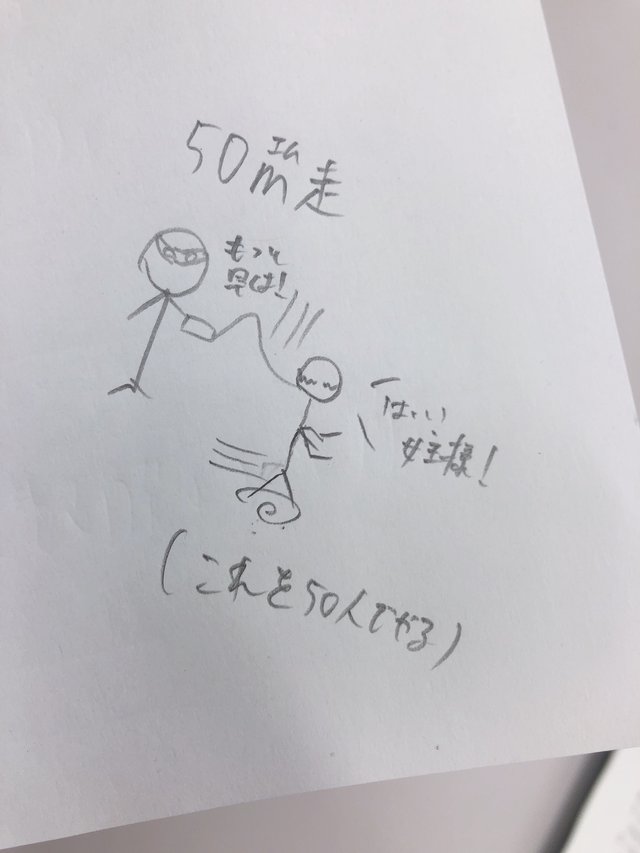 エム
50m走
もっと
早く!
はいぃ
女王様!
(これを50人でやる)